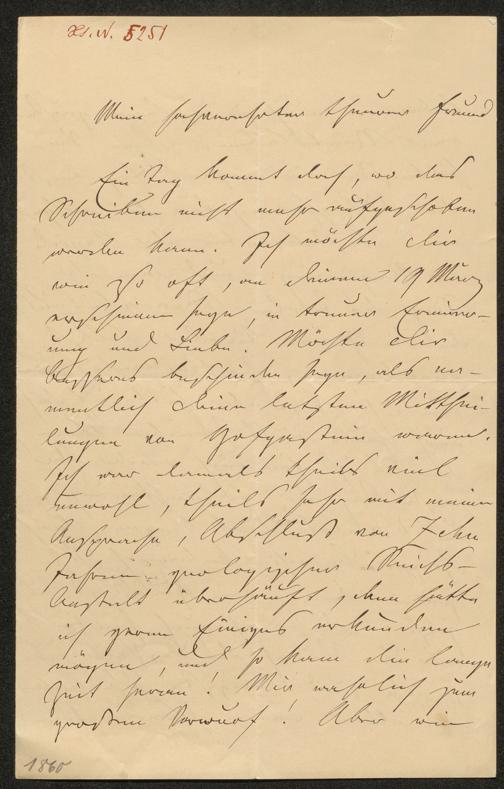 Hs. N. 5251
Mein hochverehrter theurer Freund
Ein Tag kommt doch, wo das
Schreiben nicht mehr aufgeschoben
werden kann. Ich möchte dir
wie so oft, an deinem 19 März
erscheinen, in treuer Erinner-
ung und Liebe. Möchte dir
Besseres beschieden seyn, als na-
mentlich deine letzten Mitthei-
lungen von Hofgastein waren.
Ich war damals theils viel
unwohl, theils sehr mit meiner
Ansprache, Abschluß von Zehn
Jahren geologischer Reichs-
Anstalt überhäuft, denn hätte
ich gerne Einiges erkunden
mögen, und so kam die lange
Zeit heran! Mir wahrlich zum
großen Vorwurf! Aber wie
1860